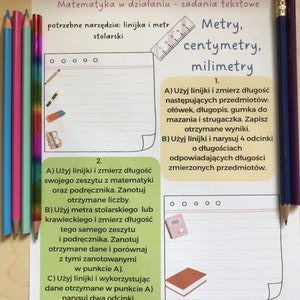 Matematyka w działaniu - zadania tekstowe
potrzebne narzędzia: linijka i metr
stolarski
Metry,
centymetry,
milimetry
1.
A) Użyj linijki i zmierz długość
następujących przedmiotów:
ołówek, długopis, gumka do
mazania i strugaczka. Zapisz
otrzymane wyniki.
B) Użyj linijki i narysuj 4 odcinki
o długościach
odpowiadających długości
zmierzonych przedmiotów.
2.
A) Użyj linijki i zmierz długość
swojego zeszytu z matematyki
oraz podręcznika. Zanotuj
otrzymane liczby.
B) Użyj metra stolarskiego lub
krawieckiego i zmierz długość
tego samego zeszytu
i podręcznika. Zanotuj
otrzymane dane i porównaj
z tymi zanotowanymi
w punkcie A).
C) Użyj linijki i wykorzystując
dane otrzymane w punkcie A)
narysuj dwa odcinki